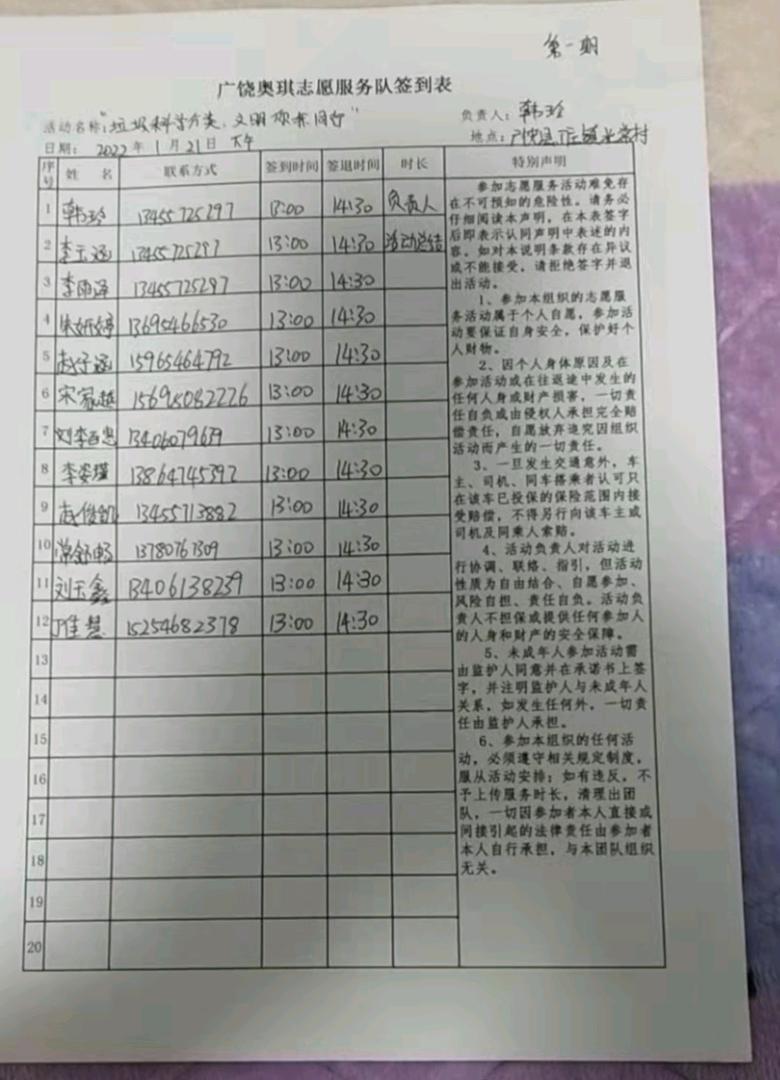 第一期
广饶奥琪志愿服务队签到表
活动名称:"垃圾科学分类,文明你我同行" 负责人:韩玲
日期: 2022 年 1 月 21 日 下午 地点:
序号 姓 名 联系方式 签到时间 签退时间 时长 特别声明
1 韩玲 13455725297 13:00 14:30 负责人
2 李玉涵 13455725297 13:00 14:30 活动总结
3 李雨泽 13455725297 13:00 14:30
4 13695466530 13:00 14:30
5 赵子涵 15965464792 13:00 14:30
6 宋家越 15695082276 13:00 14:30
7 13:00 14:30
8 李姿瑾 13864745392 13:00 14:30
9 赵俊凯 13455713882 13:00 14:30
10 常舒畅 13780767309 13:00 14:30
11 刘玉鑫 13406138239 13:00 14:30
12 佳慧 15254682378 13:00 14:30
13
14
15
16
17
18
19
20
参加志愿服务活动难免存
在不可预知的危险性。请务必
仔细阅读本声明,在本表签字
后即表示认同声明中表述的内
容。如对本说明条款存在异议
或不能接受,请拒绝签字并退
出活动。
1、参加本组织的志愿服
务活动属于个人自愿,参加活
动要保证自身安全,保护好个
人财物。
2、因个人身体原因及在
参加活动或在往返途中发生的
任何人身或财产损害,一切责
任自负或由侵权人承担完全赔
偿责任,自愿放弃追究因组织
活动而产生的一切责任。
3、一旦发生交通意外,车
主、司机、同车搭乘者认可只
在该车已投保的保险范围内接
受赔偿,不得另行向该车主或
司机及同乘人索赔。
4、活动负责人对活动进
行协调、联络、指引,但活动
性质为自由结合、自愿参加、
风险自担、责任自负。活动负
责人不担保或提供任何参加人
的人身和财产的安全保障。
5、未成年人参加活动需
由监护人同意并在承诺书上签
字,并注明监护人与未成年人
关系,如发生任何外,一切责
任由监护人承担。
6、参加本组织的任何活
动,必须遵守相关规定制度,
服从活动安排;如有违反,不
予上传服务时长,清理出团
队,一切因参加者本人直接或
间接引起的法律责任由参加者
本人自行承担,与本团队组织
无关。